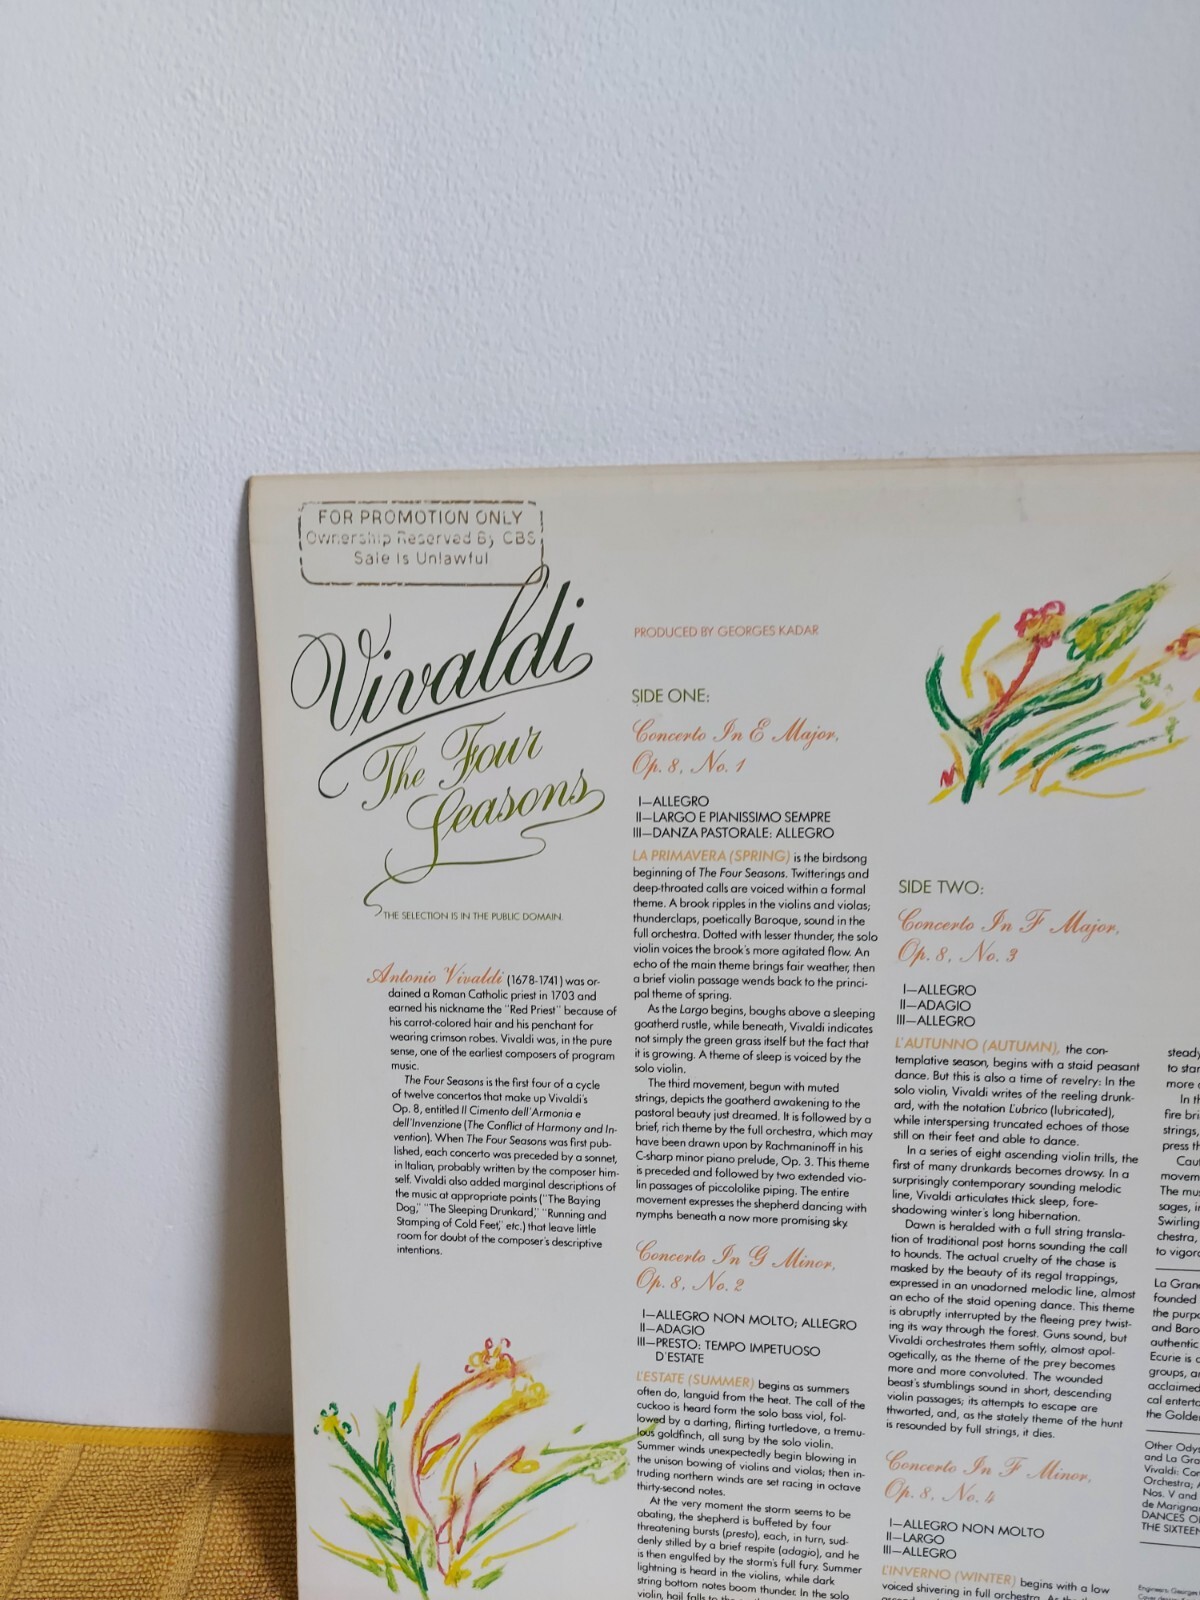 FOR PROMOTION ONLY
Ownership Reserved By CBS
Sale Is Unlawful
Vivaldi
The Four
Seasons
THE SELECTION IS IN THE PUBLIC DOMAIN.
Antonio Vivaldi (1678-1741) was or-
dained a Roman Catholic priest in 1703 and
earned his nickname the "Red Priest" because of
his carrot-colored hair and his penchant for
wearing crimson robes. Vivaldi was, in the pure
sense, one of the earliest composers of program
music.
The Four Seasons is the first four of a cycle
of twelve concertos that make up Vivaldi's
Op. 8, entitled Il Cimento dell'Armonia e
dell'Invenzione (The Conflict of Harmony and In-
vention). When The Four Seasons was first pub-
lished, each concerto was preceded by a sonnet,
in Italian, probably written by the composer him-
self. Vivaldi also added marginal descriptions of
the music at appropriate points ("The Baying
Dog," "The Sleeping Drunkard," "Running and
Stamping of Cold Feet," etc.) that leave little
room for doubt of the composer's descriptive
intentions.
PRODUCED BY GEORGES KADAR
SIDE ONE:
Concerto In E Major,
Op. 8, No. 1
I—ALLEGRO
II—LARGO E PIANISSIMO SEMPRE
III—DANZA PASTORALE: ALLEGRO
LA PRIMAVERA (SPRING) is the birdsong
beginning of The Four Seasons. Twitterings and
deep-throated calls are voiced within a formal
theme. A brook ripples in the violins and violas;
thunderclaps, poetically Baroque, sound in the
full orchestra. Dotted with lesser thunder, the solo
violin voices the brook's more agitated flow. An
echo of the main theme brings fair weather, then
a brief violin passage wends back to the princi-
pal theme of spring.
As the Largo begins, boughs above a sleeping
goatherd rustle, while beneath, Vivaldi indicates
not simply the green grass itself but the fact that
it is growing. A theme of sleep is voiced by the
solo violin.
The third movement, begun with muted
strings, depicts the goatherd awakening to the
pastoral beauty just dreamed. It is followed by a
brief, rich theme by the full orchestra, which may
have been drawn upon by Rachmaninoff in his
C-sharp minor piano prelude, Op. 3. This theme
is preceded and followed by two extended vio-
lin passages of piccololike piping. The entire
movement expresses the shepherd dancing with
nymphs beneath a now more promising sky.
Concerto In G Minor,
Op. 8, No. 2
I—ALLEGRO NON MOLTO; ALLEGRO
II—ADAGIO
III—PRESTO: TEMPO IMPETUOSO
D'ESTATE
L'ESTATE (SUMMER) begins as summers
often do, languid from the heat. The call of the
cuckoo is heard form the solo bass viol, fol-
lowed by a darting, flirting turtledove, a tremu-
lous goldfinch, all sung by the solo violin.
Summer winds unexpectedly begin blowing in
the unison bowing of violins and violas; then in-
truding northern winds are set racing in octave
thirty-second notes.
At the very moment the storm seems to be
abating, the shepherd is buffeted by four
threatening bursts (presto), each, in turn, sud-
denly stilled by a brief respite (adagio), and he
is then engulfed by the storm's full fury. Summer
lightning is heard in the violins, while dark
string bottom notes boom thunder. In the solo
violin, hail falls to the
SIDE TWO:
Concerto In F Major,
Op. 8, No. 3
I—ALLEGRO
II—ADAGIO
III—ALLEGRO
L'AUTUNNO (AUTUMN), the con-
templative season, begins with a staid peasant
dance. But this is also a time of revelry: In the
solo violin, Vivaldi writes of the reeling drunk-
ard, with the notation L'ubrico (lubricated),
while interspersing truncated echoes of those
still on their feet and able to dance.
In a series of eight ascending violin trills, the
first of many drunkards becomes drowsy. In a
surprisingly contemporary sounding melodic
line, Vivaldi articulates thick sleep, fore-
shadowing winter's long hibernation.
Dawn is heralded with a full string transla-
tion of traditional post horns sounding the call
to hounds. The actual cruelty of the chase is
masked by the beauty of its regal trappings,
expressed in an unadorned melodic line, almost
an echo of the staid opening dance. This theme
is abruptly interrupted by the fleeing prey twist-
ing its way through the forest. Guns sound, but
Vivaldi orchestrates them softly, almost apol-
ogetically, as the theme of the prey becomes
more and more convoluted. The wounded
beast's stumblings sound in short, descending
violin passages; its attempts to escape are
thwarted, and, as the stately theme of the hunt
is resounded by full strings, it dies.
Concerto In F Minor,
Op. 8, No. 4
I—ALLEGRO NON MOLTO
II—LARGO
III—ALLEGRO
L'INVERNO (WINTER) begins with a low
voiced shivering in full orchestra. As the
steady
to star
more
In th
fire bri
strings,
press th
Caut
movem
The mus
sages, i
Swirling
chestra,
to vigor
La Gran
founded
the purpo
and Baro
authentic
Ecurie is
groups, a
acclaimed
cal enterta
the Golde
Other Odys
and La Gra
Vivaldi: Co
Orchestra;
Nos. V and
de Marigna
DANCES O
THE SIXTEEN
Engineers: Georges
Cover design: